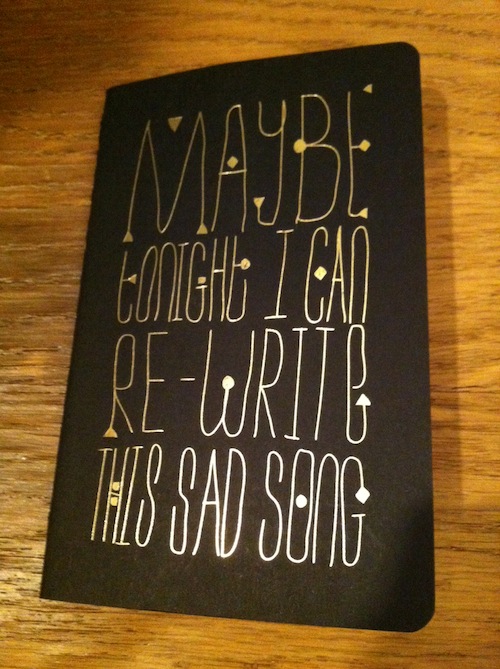 MAYBE
tONIGHt I CAN
RE-WRITE
THIS SAD SONG